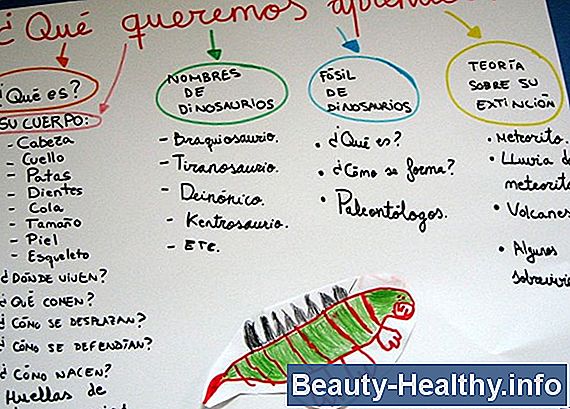 ¿Qué queremos
¿Qué es?
SU CUERPO:
- Cabeza
- Cuello
- Patas
- Dientes
- Cola
- Tamaño
- Piel
- Esqueleto
¿DÓNDE VIVEN?
¿QUÉ COMEN?
¿CÓMO SE DESPLAZAN?
¿CÓMO SE DEFENDÍAN?
¿CÓMO NACEN?
Huellas de
NOMBRES
DE
DINOSAURIOS
- Braquiosaurio.
- Tiranosaurio.
- Deinónico.
- Kentrosaurio.
- ETC.
FÓSIL
DE
DINOSAURIOS
• ¿Qué es?
• ¿Cómo se forma?
• Paleontólogos.
TEORÍA
SOBRE SU
EXTINCIÓN
• Meteorito.
• Lluvia de
meteorito
• Volcanes
• Algunos
sobrevivie
Beauty-Healthy.info